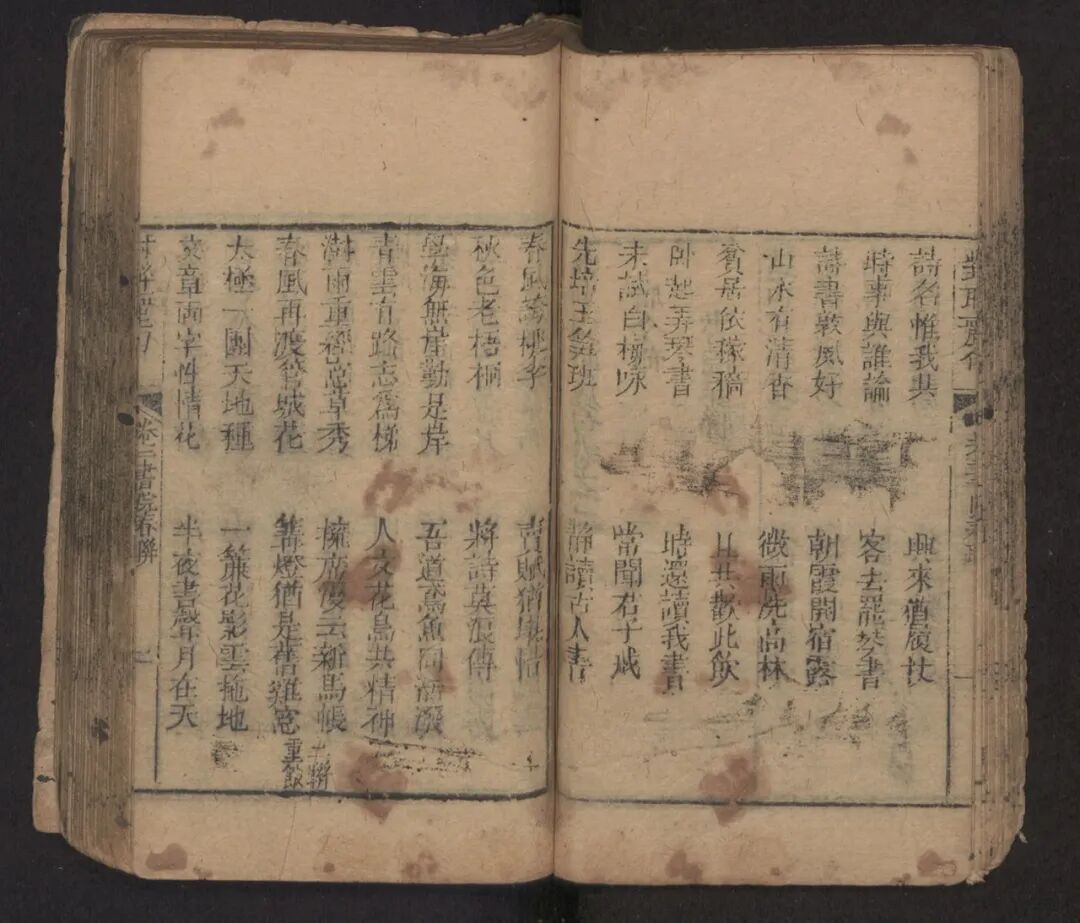 詩名惟我共
興來猶屐杖
時事與誰論
客去罷琴書
詩書敦夙好
朝霞開宿霧
山水有清香
微雨洗高林
貧居依稼穡
日共歡此飲
卧起弄琴書
時還讀我書
未試白
詠
當聞君子戒
先培玉筍班
靜讀古人書
春風
桃李
賣賦猶
惜
秋色老梧桐
將詩莫浪傳
學海無岸勤是岸
吾道鳶魚同活潑
青雲有路志為梯
人文花鳥共精神
澍雨重
草秀
擁席
新馬帳
二聯
春風再渡管城花
篝燈猶是舊雞窓
重飲
太極一團天地種
一簾花影雲拖地
文章兩字性情花
半夜書聲月在天
卷三書院春聯